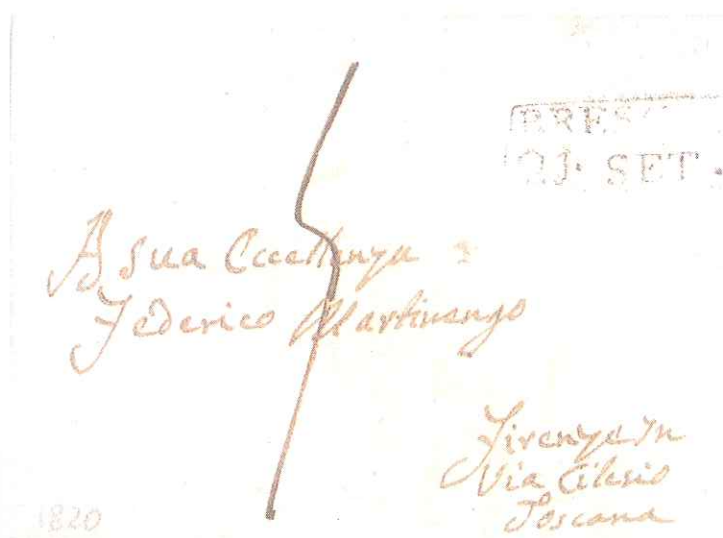 BRESC
21. SET.
A Sua Eccellenza
Federico Martinengo
Firenze in
Via
Toscana
1820